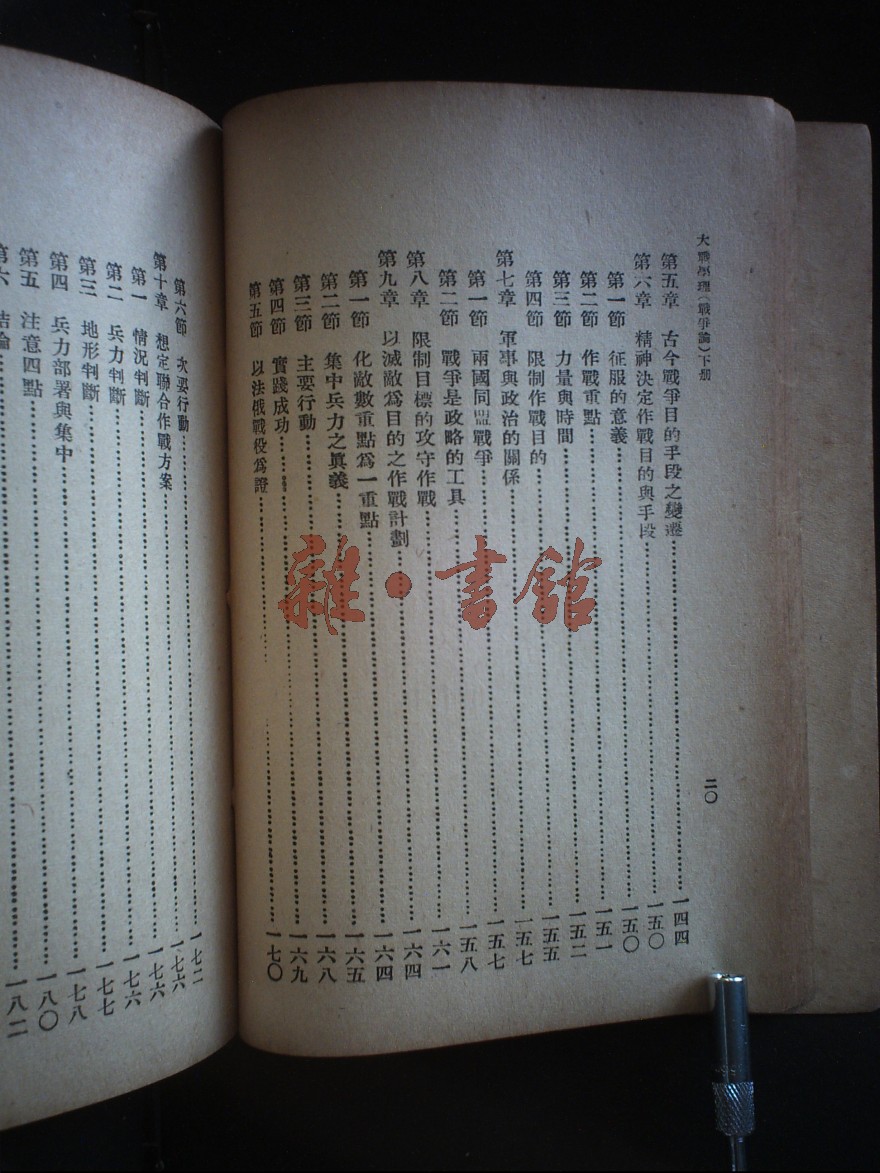 大戰學理(戰爭論)下册
二〇
第五章 古今戰爭目的手段之變遷……一四四
第六章 精神決定作戰目的與手段……一五〇
第一節 征服的意義……一五〇
第二節 作戰重點……一五一
第三節 力量與時間……一五二
第四節 限制作戰目的……一五五
第七章 軍事與政治的關係……一五七
第一節 兩國同盟戰爭……一五七
第二節 戰爭是政略的工具……一五八
第八章 限制目標的攻守作戰……一六一
第九章 以滅敵爲目的之作戰計劃……一六四
第一節 化敵數重點爲一重點……一六四
第二節 集中兵力之眞義……一六五
第三節 主要行動……一六八
第四節 實踐成功……一六九
第五節 以法俄戰役爲證……一七〇
第六節 次要行動……一七二
第十章 想定聯合作戰方案……一七六
第一 情況判斷……一七六
第二 兵力判斷……一七六
第三 地形判斷……一七七
第四 兵力部署與集中……一七八
第五 注意四點……一八〇
第六 結論……一八二
雜·書館